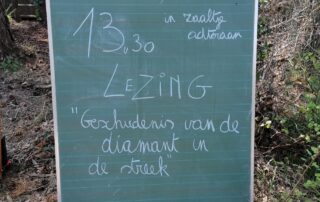 13.30 in zaaltje
achteraan
LEZING
"Geschiedenis van de
diamant in
de streek"